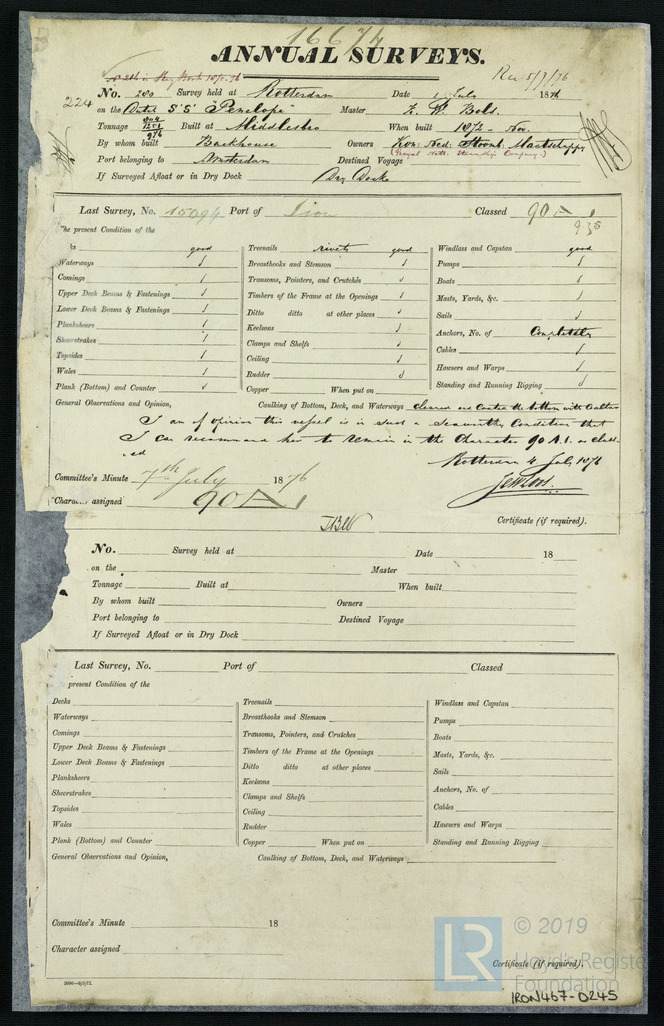 16674
ANNUAL SURVEYS.
Rec 5/7/76
224
No. 280 Survey held at Rotterdam Date 4 July 1876
on the Dutch S"S" "Penelope" Master Bols.
Tonnage 1251 976 Built at Middlesbro When built 1872 - Nov.
By whom built Backhouse Owners Kon: Ned: Stoomb. Maatschappy
(Royal Neth. Steamship Company.)
Port belonging to Amsterdam Destined Voyage
If Surveyed Afloat or in Dry Dock Dry Dock
Last Survey, No. 15094 Port of Iron Classed 90 A 1
935
The present Condition of the
good
Waterways
Comings
Upper Deck Beams & Fastenings
Lower Deck Beams & Fastenings
Planksheers
Sheerstrakes
Topsides
Wales
Plank (Bottom) and Counter
Treenails rivets good
Breasthooks and Stemson
Transoms, Pointers, and Crutches
Timbers of the Frame at the Openings
Ditto ditto at other places
Keelsons
Clamps and Shelfs
Ceiling
Rudder
Copper When put on
Windlass and Capstan good
Pumps
Boats
Masts, Yards, &c.
Sails
Anchors, No. of Completely
Cables
Hawsers and Warps
Standing and Running Rigging
General Observations and Opinion, Caulking of Bottom, Deck, and Waterways cleaned and coated the bottom with
I am of opinion this vessel is in such a Seaworthy Condition that
I can recommend her to remain in the Character 90 A.1. as class-
ed
Rotterdam 4 July 1876
Committee's Minute 7th July 1876
Character assigned 90 A 1
Certificate (if required).
No. Survey held at Date 18
on the Master
Tonnage Built at When built
By whom built Owners
Port belonging to Destined Voyage
If Surveyed Afloat or in Dry Dock
Last Survey, No. Port of Classed
present Condition of the
Decks
Waterways
Comings
Upper Deck Beams & Fastenings
Lower Deck Beams & Fastenings
Planksheers
Sheerstrakes
Topsides
Wales
Plank (Bottom) and Counter
Treenails
Breasthooks and Stemson
Transoms, Pointers, and Crutches
Timbers of the Frame at the Openings
Ditto ditto at other places
Keelsons
Clamps and Shelfs
Ceiling
Rudder
Copper When put on
Windlass and Capstan
Pumps
Boats
Masts, Yards, &c.
Sails
Anchors, No. of
Cables
Hawsers and Warps
Standing and Running Rigging
General Observations and Opinion, Caulking of Bottom, Deck, and Waterways
Committee's Minute 18
Character assigned
Certificate (if required).
LR © 2019
Lloyd's Registe
Foundation
IRON467-0245